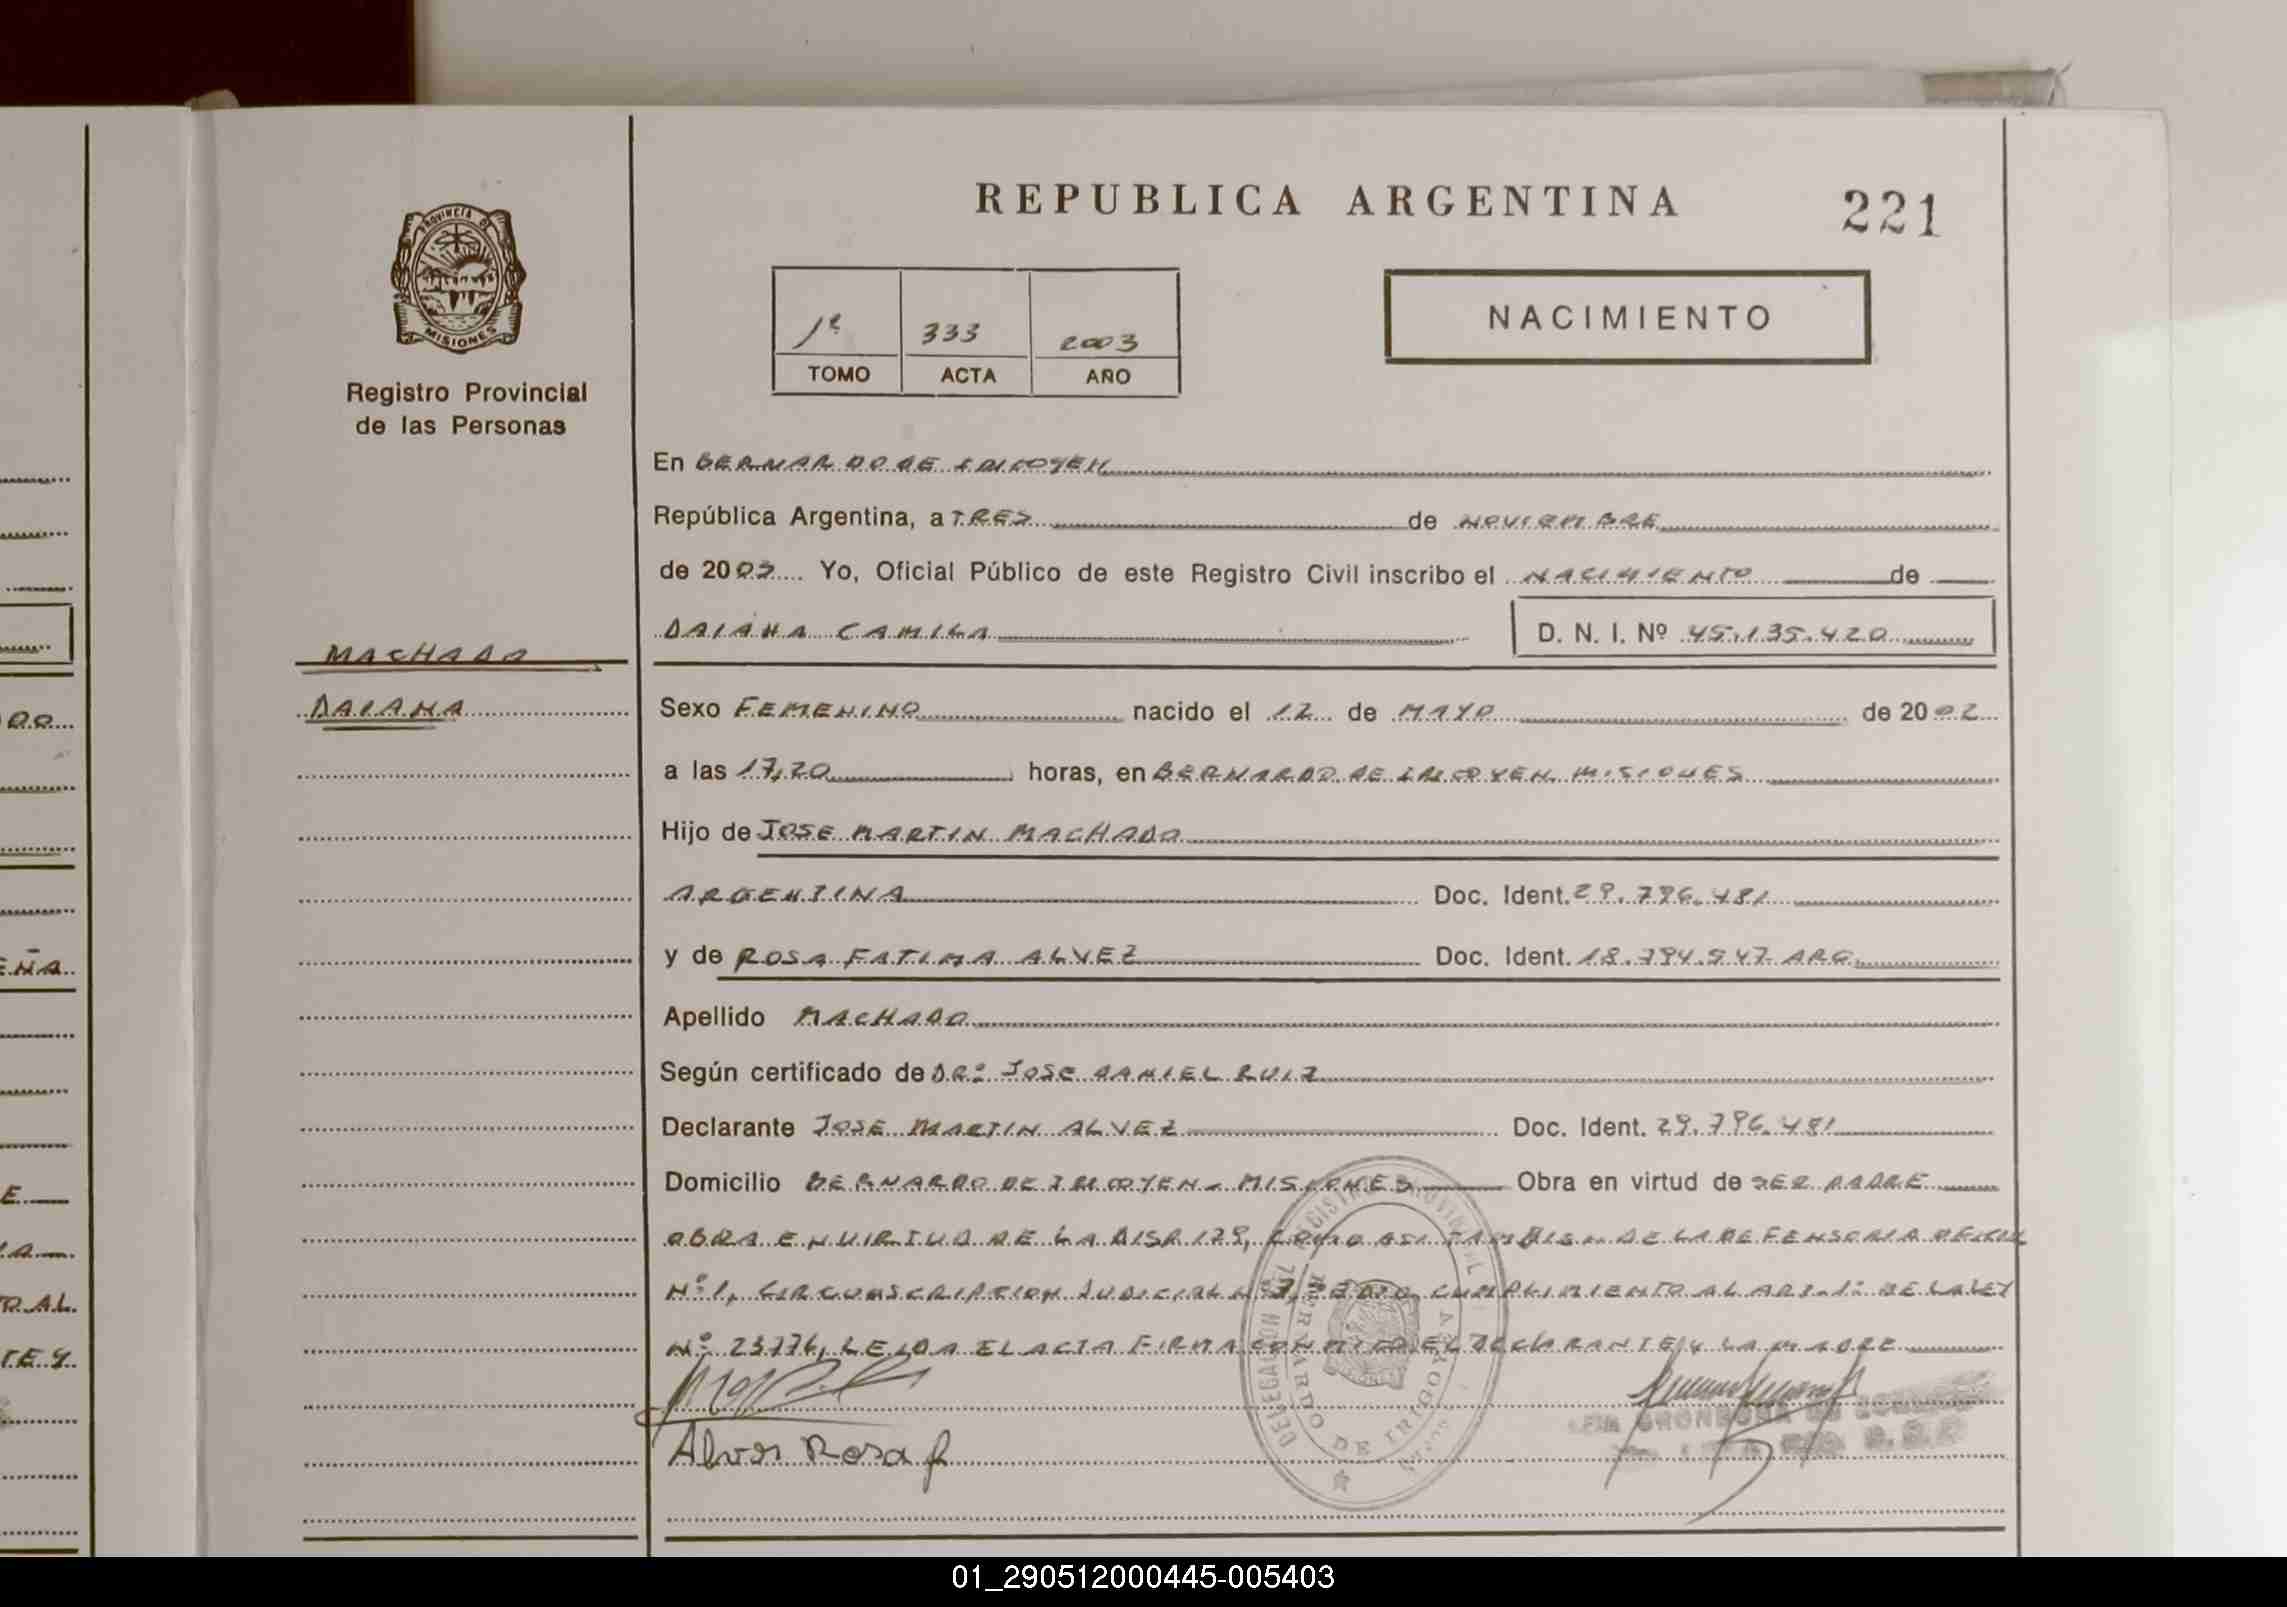 REPUBLICA ARGENTINA
221
PROVINCIA DE
MISIONES
Registro Provincial
de las Personas
1º 333 2003
TOMO ACTA AÑO
NACIMIENTO
En BERNARDO DE IRIGOYEN
República Argentina, a TRES de NOVIEMBRE
de 2003 Yo, Oficial Público de este Registro Civil inscribo el NACIMIENTO de
DAIANA CAMILA D. N. I. Nº 45.135.420
MACHADO
DAIANA
Sexo FEMENINO nacido el 12 de MAYO de 2002
a las 17,20 horas, en BERNARDO DE IRIGOYEN MISIONES
Hijo de JOSE MARTIN MACHADO
ARGENTINA Doc. Ident. 29.796.481
y de ROSA FATIMA ALVEZ Doc. Ident. 18.794.947 ARG.
Apellido MACHADO
Según certificado de DRº JOSE DANIEL RUIZ
Declarante JOSE MARTIN ALVEZ Doc. Ident. 29.796.481
Domicilio BERNARDO DE IRIGOYEN - MISIONES Obra en virtud de SER PADRE
OBRA EN VIRTUD DE LA DISP. 179, COMO ASI TAMBIEN DE LA DEFENSORIA OFICIAL
Nº 1, CIRCUNSCRIPCION JUDICIAL Nº CUMPLIMIENTO AL ART. 1º DE LA LEY
Nº 23776, LEIDA EL ACTA FIRMA CONMIGO EL DECLARANTE Y LA MADRE
Alves Rosa f
DELEGACION DEL REGISTRO PROVINCIAL
BERNARDO DE IRIGOYEN
EÑA
01_290512000445-005403